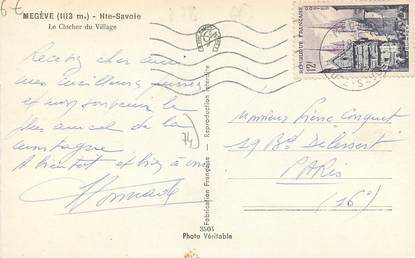 6€
MEGÈVE (1113 m.) - Hte-Savoie
Le Clocher du Village
Recevez cher ami
mes meilleurs pensées
et mon souvenir le
plus amical de la
montagne
A bientôt et bien à vous
74)
Fabrication Française - Reproduction Interdite
3505
Photo Véritable
RÉPUBLIQUE FRANÇAISE
12F
Monsieur Pierre
19 Bd Delessert
PARIS
(16e)